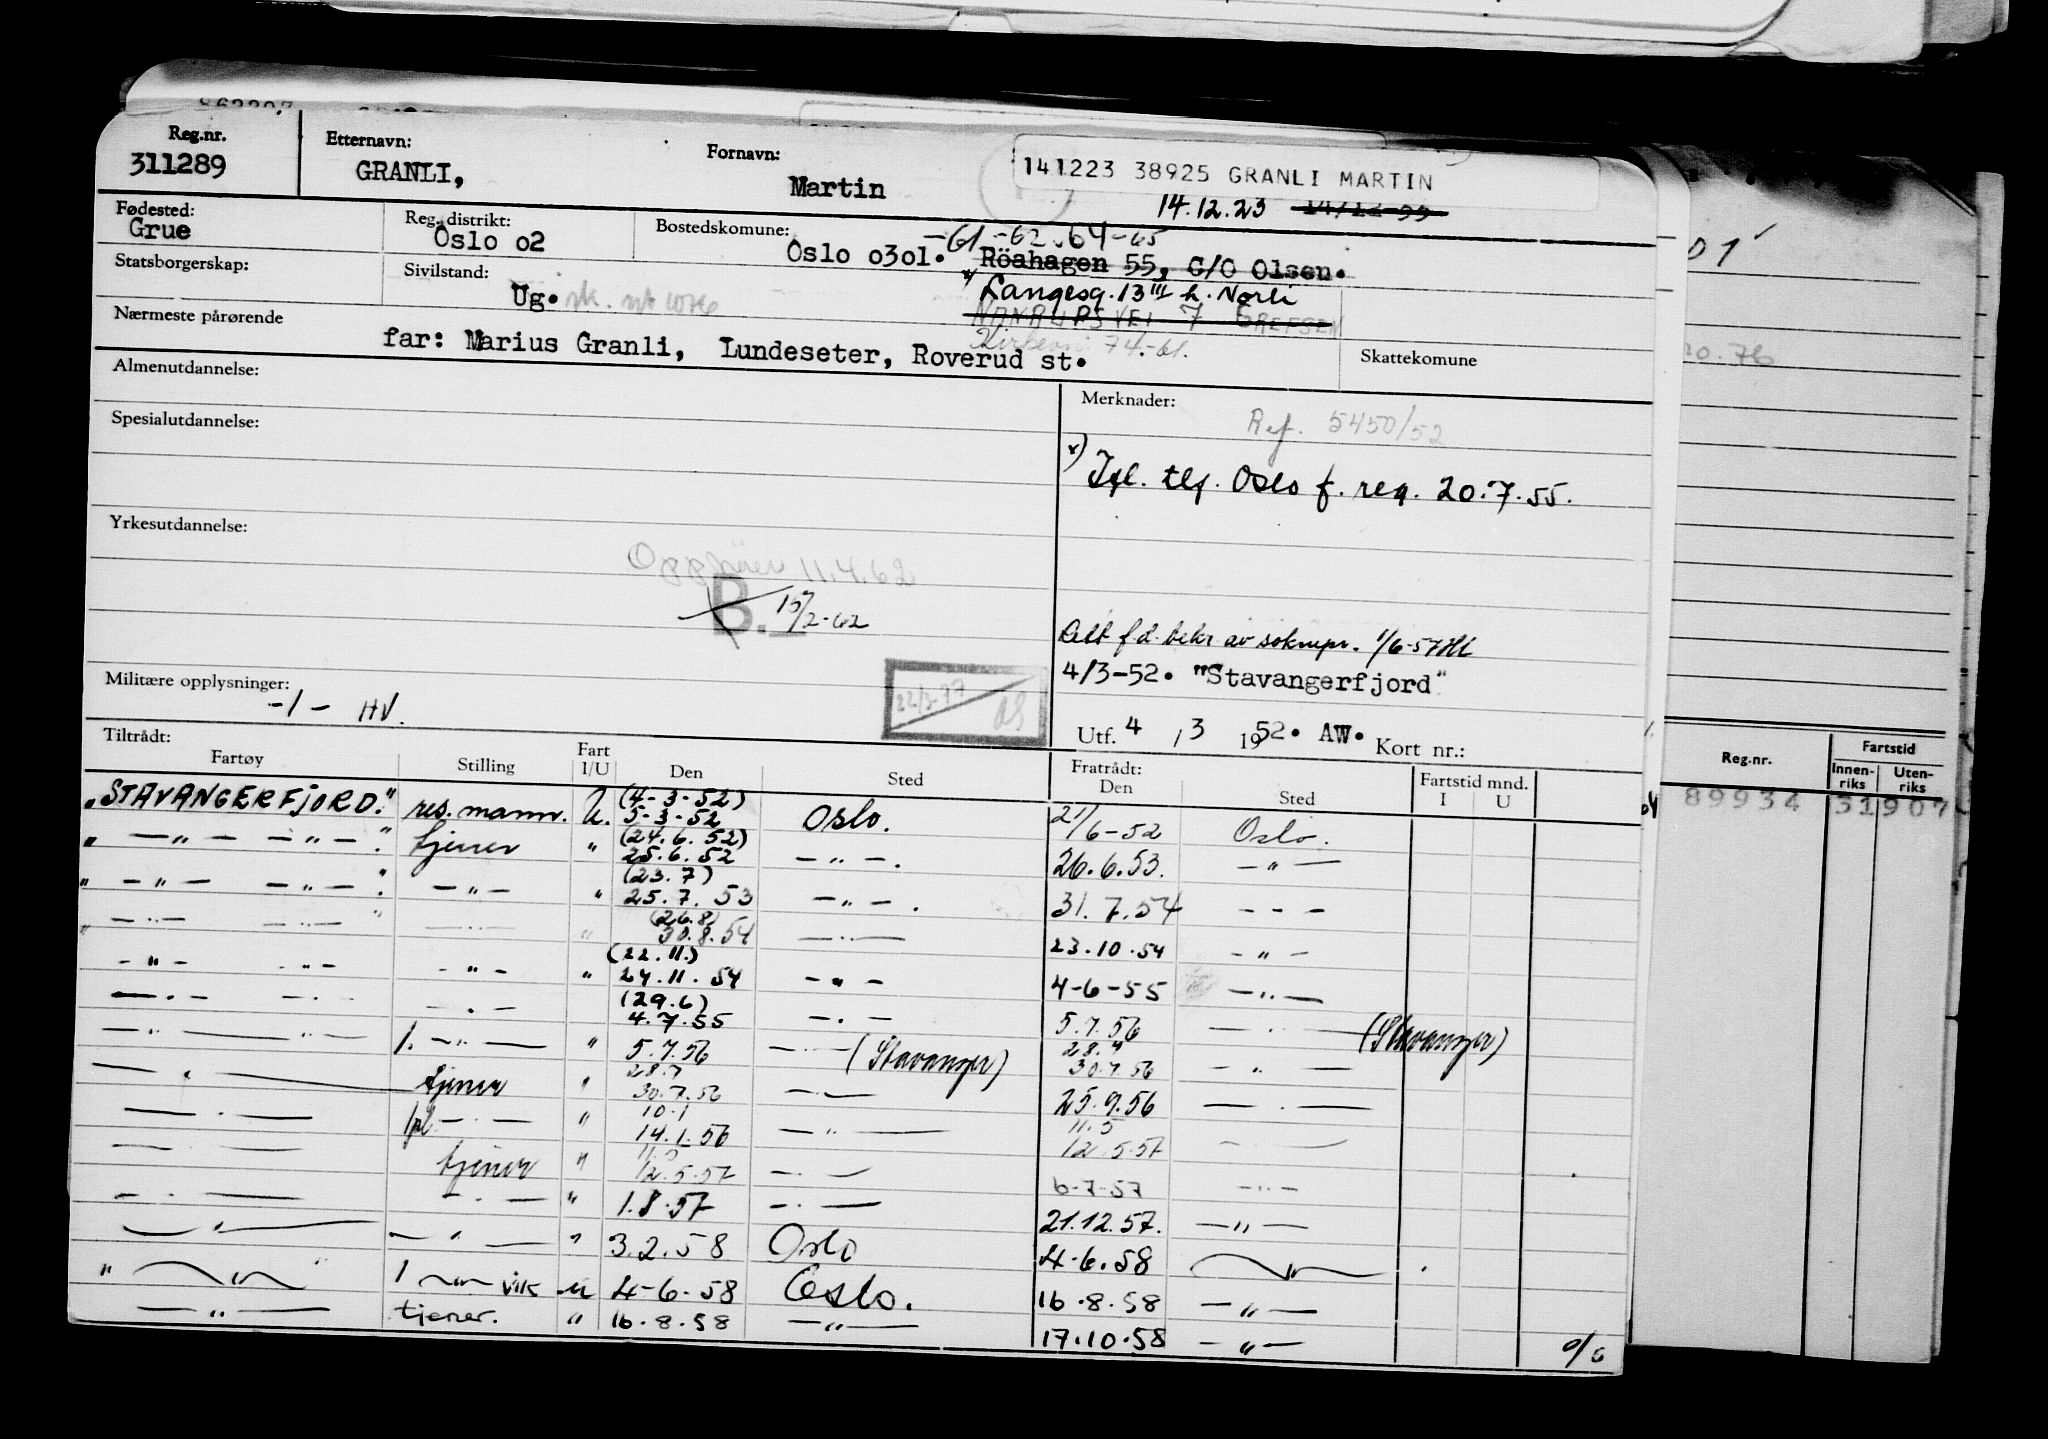 Reg.nr.
311289
Etternavn:
GRANLI,
Fornavn:
Martin
141223 38925 GRANLI MARTIN
14.12.23
Fødested:
Grue
Reg. distrikt:
Oslo o2
Bostedskomune:
Oslo o3o1.
-61-62.64-65
Röahagen 55, C/O Olsen.
Statsborgerskap:
Sivilstand:
Ug.
x Langesg. 13 III h. Norli
Nærmeste pårørende
far: Marius Granli, Lundeseter, Roverud st.
74.-61.
Skattekomune
Almenutdannelse:
Merknader:
Ref. 5450/52
Spesialutdannelse:
x) Ifl. tlf. Oslo f. reg. 20.7.55.
Yrkesutdannelse:
Opphører 11.4.62
B. 15/2-62
Att f.d. bekr av soknepr. 1/6-57 HL
4/3-52. "Stavangerfjord"
Militære opplysninger:
-1- HV.
Utf. 4 / 3 1952. AW. Kort nr.:
Tiltrådt:
Fartøy Stilling Fart I/U Den Sted Fratrådt: Den Sted Fartstid mnd. I U
"STAVANGERFJORD." res. mann. U. (4-3-52) 5-3-52 Oslo. 21/6-52 Oslo.
" — " — — " — " tjener " (24.6.52) 25.6.52 — " —. 26.6.53. — " —
" — " — — " — " — " — " (23.7) 25.7.53 — " —. 31.7.54 — - —
" — " — — " — " — " — " (26.8) 30.8.54 — " — 23.10.54 — " —
— " — — " — — " — " (22.11.) 24.11.54 — " — 4-6-55 — " —
— " — — " — — " — (29.6) 4.7.55 — " — 5.7.56 — " — (Stavanger)
— " — — " — 1. — " — " 5.7.56 — " — (Stavanger) 28.7 30.7.56 — " —
— " — tjener " 28.7 30.7.56 — " — 25.9.56 — " —
— " — — " — " 10.1 14.1.56 — " — 11.5 12.5.57 — " —
— " — tjener " 12.5.57 — " — 6-7-57 — " —
— " — — " — " 1.8.57 — " — 21.12.57. — " —
— " — — " — " 3.2.58 Oslo 4-6.58 — " —
" — " — " 1 — " — vik u 4-6-58 Oslo. 16.8.58 — " —
— " — tjener. " 16.8.58 — " — 17.10.58 — " —
o/s
01
20.76
Reg.nr. Fartstid
Innenriks Utenriks
89934 31907